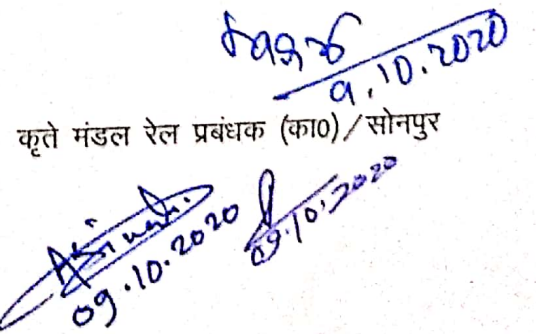 9.10.2020
कृते मंडल रेल प्रबंधक (का0)/सोनपुर
09.10.2020 09.10.2020